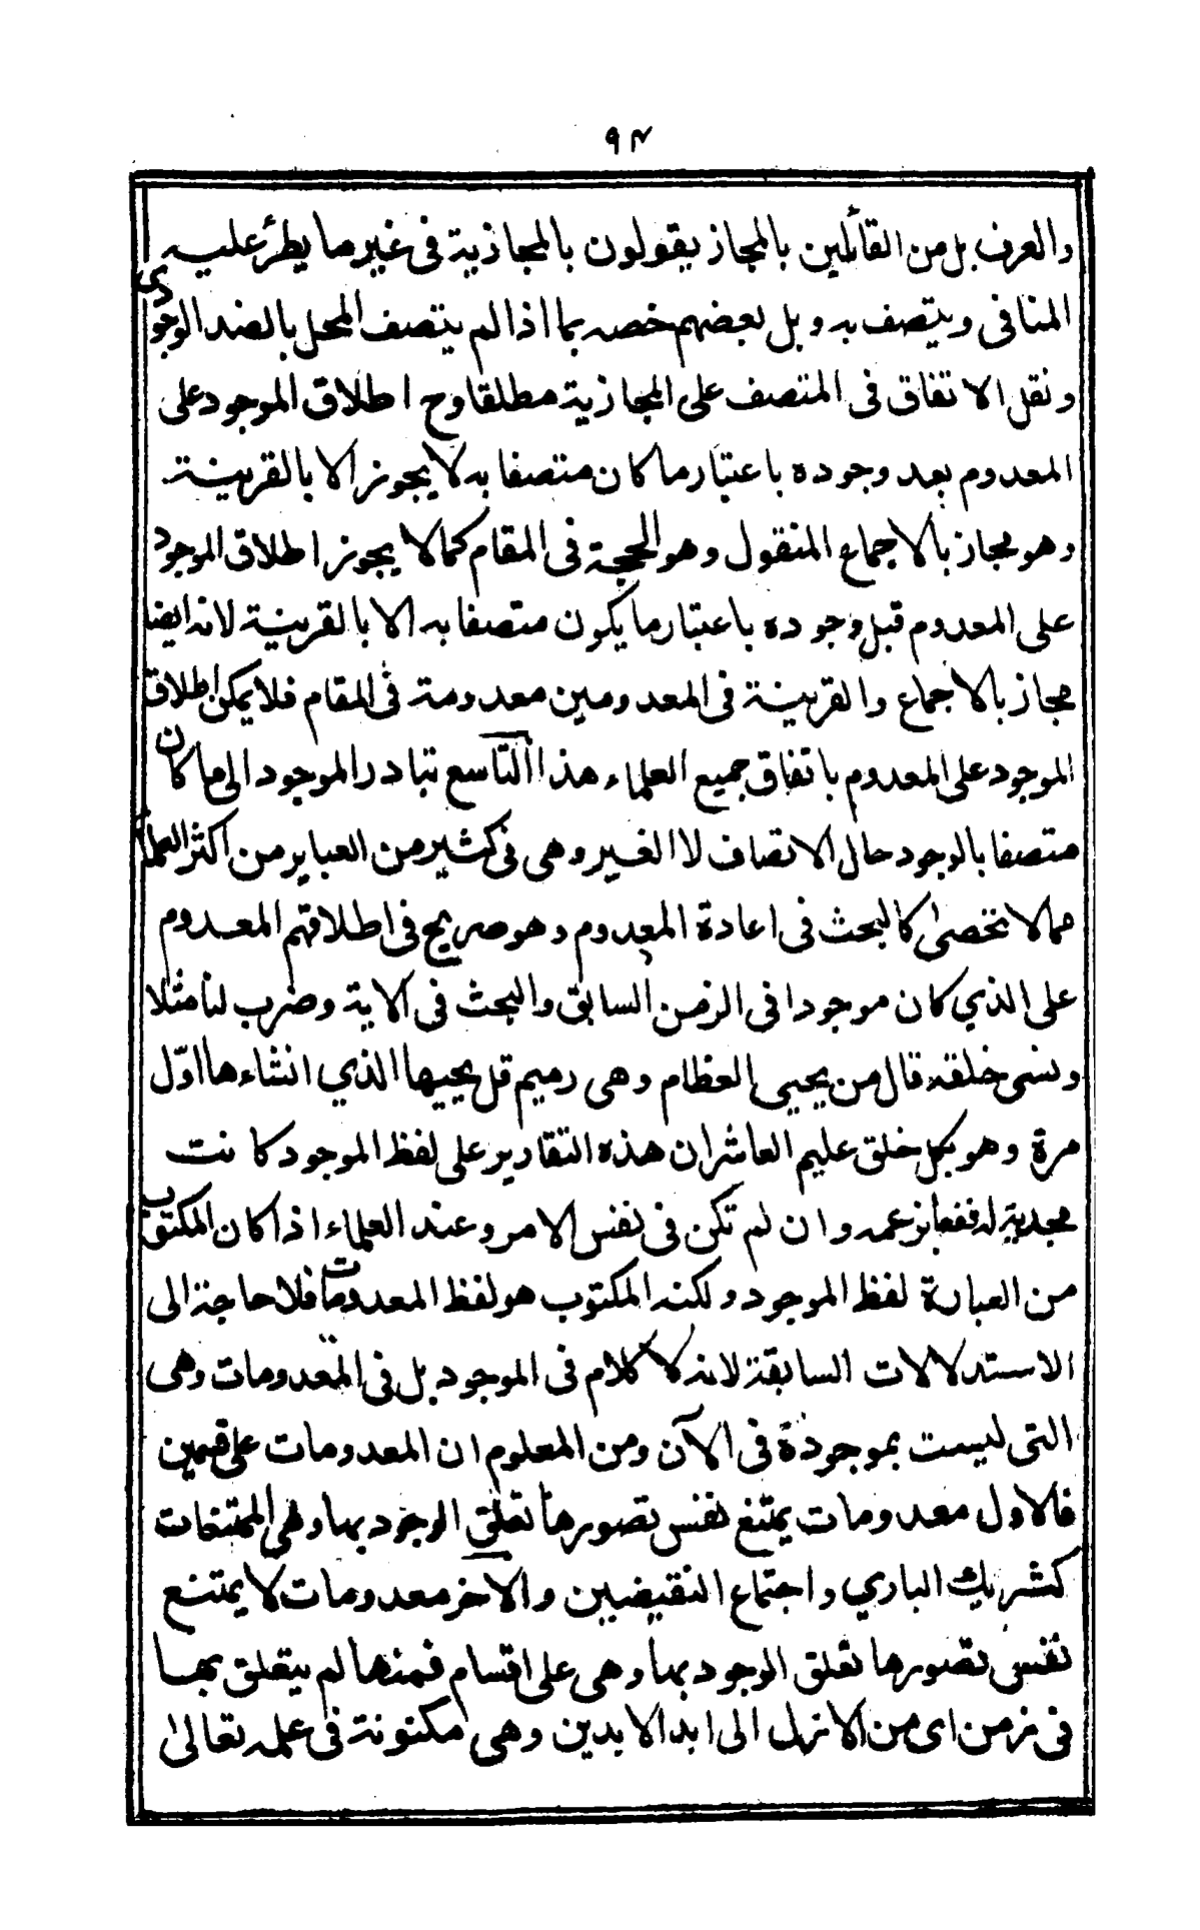 ٩٤
والعرف بل من القائلين بالمجاز يقولون بالمجازية فى غير ما يطرئ عليه
المنافى ويتصف به وبل بعضهم خصه بما اذا لم يتصف المحل بالضد الوجودي
ونقل الاتفاق فى المتصف على المجازية مطلقا وح اطلاق الموجود على
المعدوم بعد وجوده باعتبار ما كان متصفا به لا يجوز الا بالقرينة
وهو مجاز بالاجماع المنقول وهو الحجة فى المقام كما لا يجوز اطلاق الموجود
على المعدوم قبل وجوده باعتبار ما يكون متصفا به الا بالقرينة لانه ايضا
مجاز بالاجماع والقرينة فى المعدومين معدومة فى المقام فلا يمكن اطلاق
الموجود على المعدوم باتفاق جميع العلماء هذا التاسع تبادر الموجود الى ما كان
متصفا بالوجود حال الاتصاف لا الغير وهى فى كثير من العباير من اكثر العلماء
مما لا تخصىٰ كالبحث فى اعادة المعدوم وهو صريح فى اطلاقهم المعدوم
على الذي كان موجودا فى الزمن السابق والبحث فى الاية وضرب لنا مثلا
ونسى خلقه قال من يحيى العظام وهى رميم قل يحييها الذي انشاءها اوّل
مرة وهو بكل خلق عليم العاشر ان هذه التقارير على لفظ الموجود كانت
مجدية له نفعا بزعمه وان لم تكن فى نفس الامر وعند العلماء اذا كان المكتوب
من العبارة لفظ الموجود ولكنه المكتوب هو لفظ المعدومات فلا حاجة الى
الاستدلالات السابقة لانه لا كلام فى الموجود بل فى المعدومات وهى
التى ليست بموجودة فى الآن ومن المعلوم ان المعدومات على قسمين
فالاول معدومات يمتنع نفس تصورها تعلق الوجود بها وهى الممتنعات
كشريك الباري واجتماع النقيضين والاخر معدومات لا يمتنع
نفس تصورها تعلق الوجود بها وهى على اقسام فمنها لم يتعلق بها
فى زمن اى من الازل الى ابد الابدين وهى مكنونة فى علمه تعالىٰ